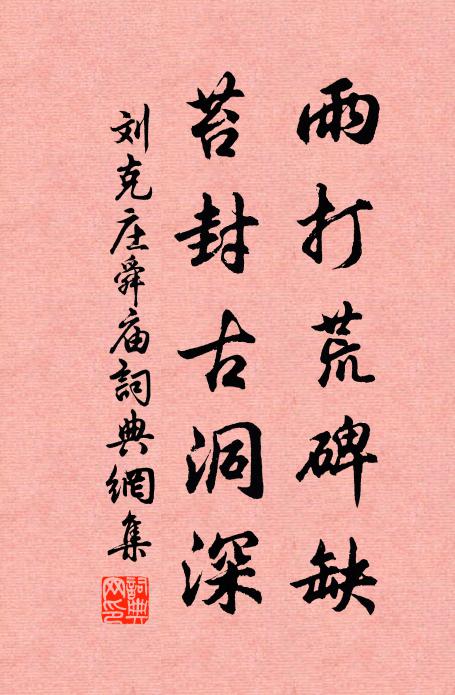 雨打荒碑缺
苔封古洞深
刘克庄舜庙詞典網集
詞典
网印